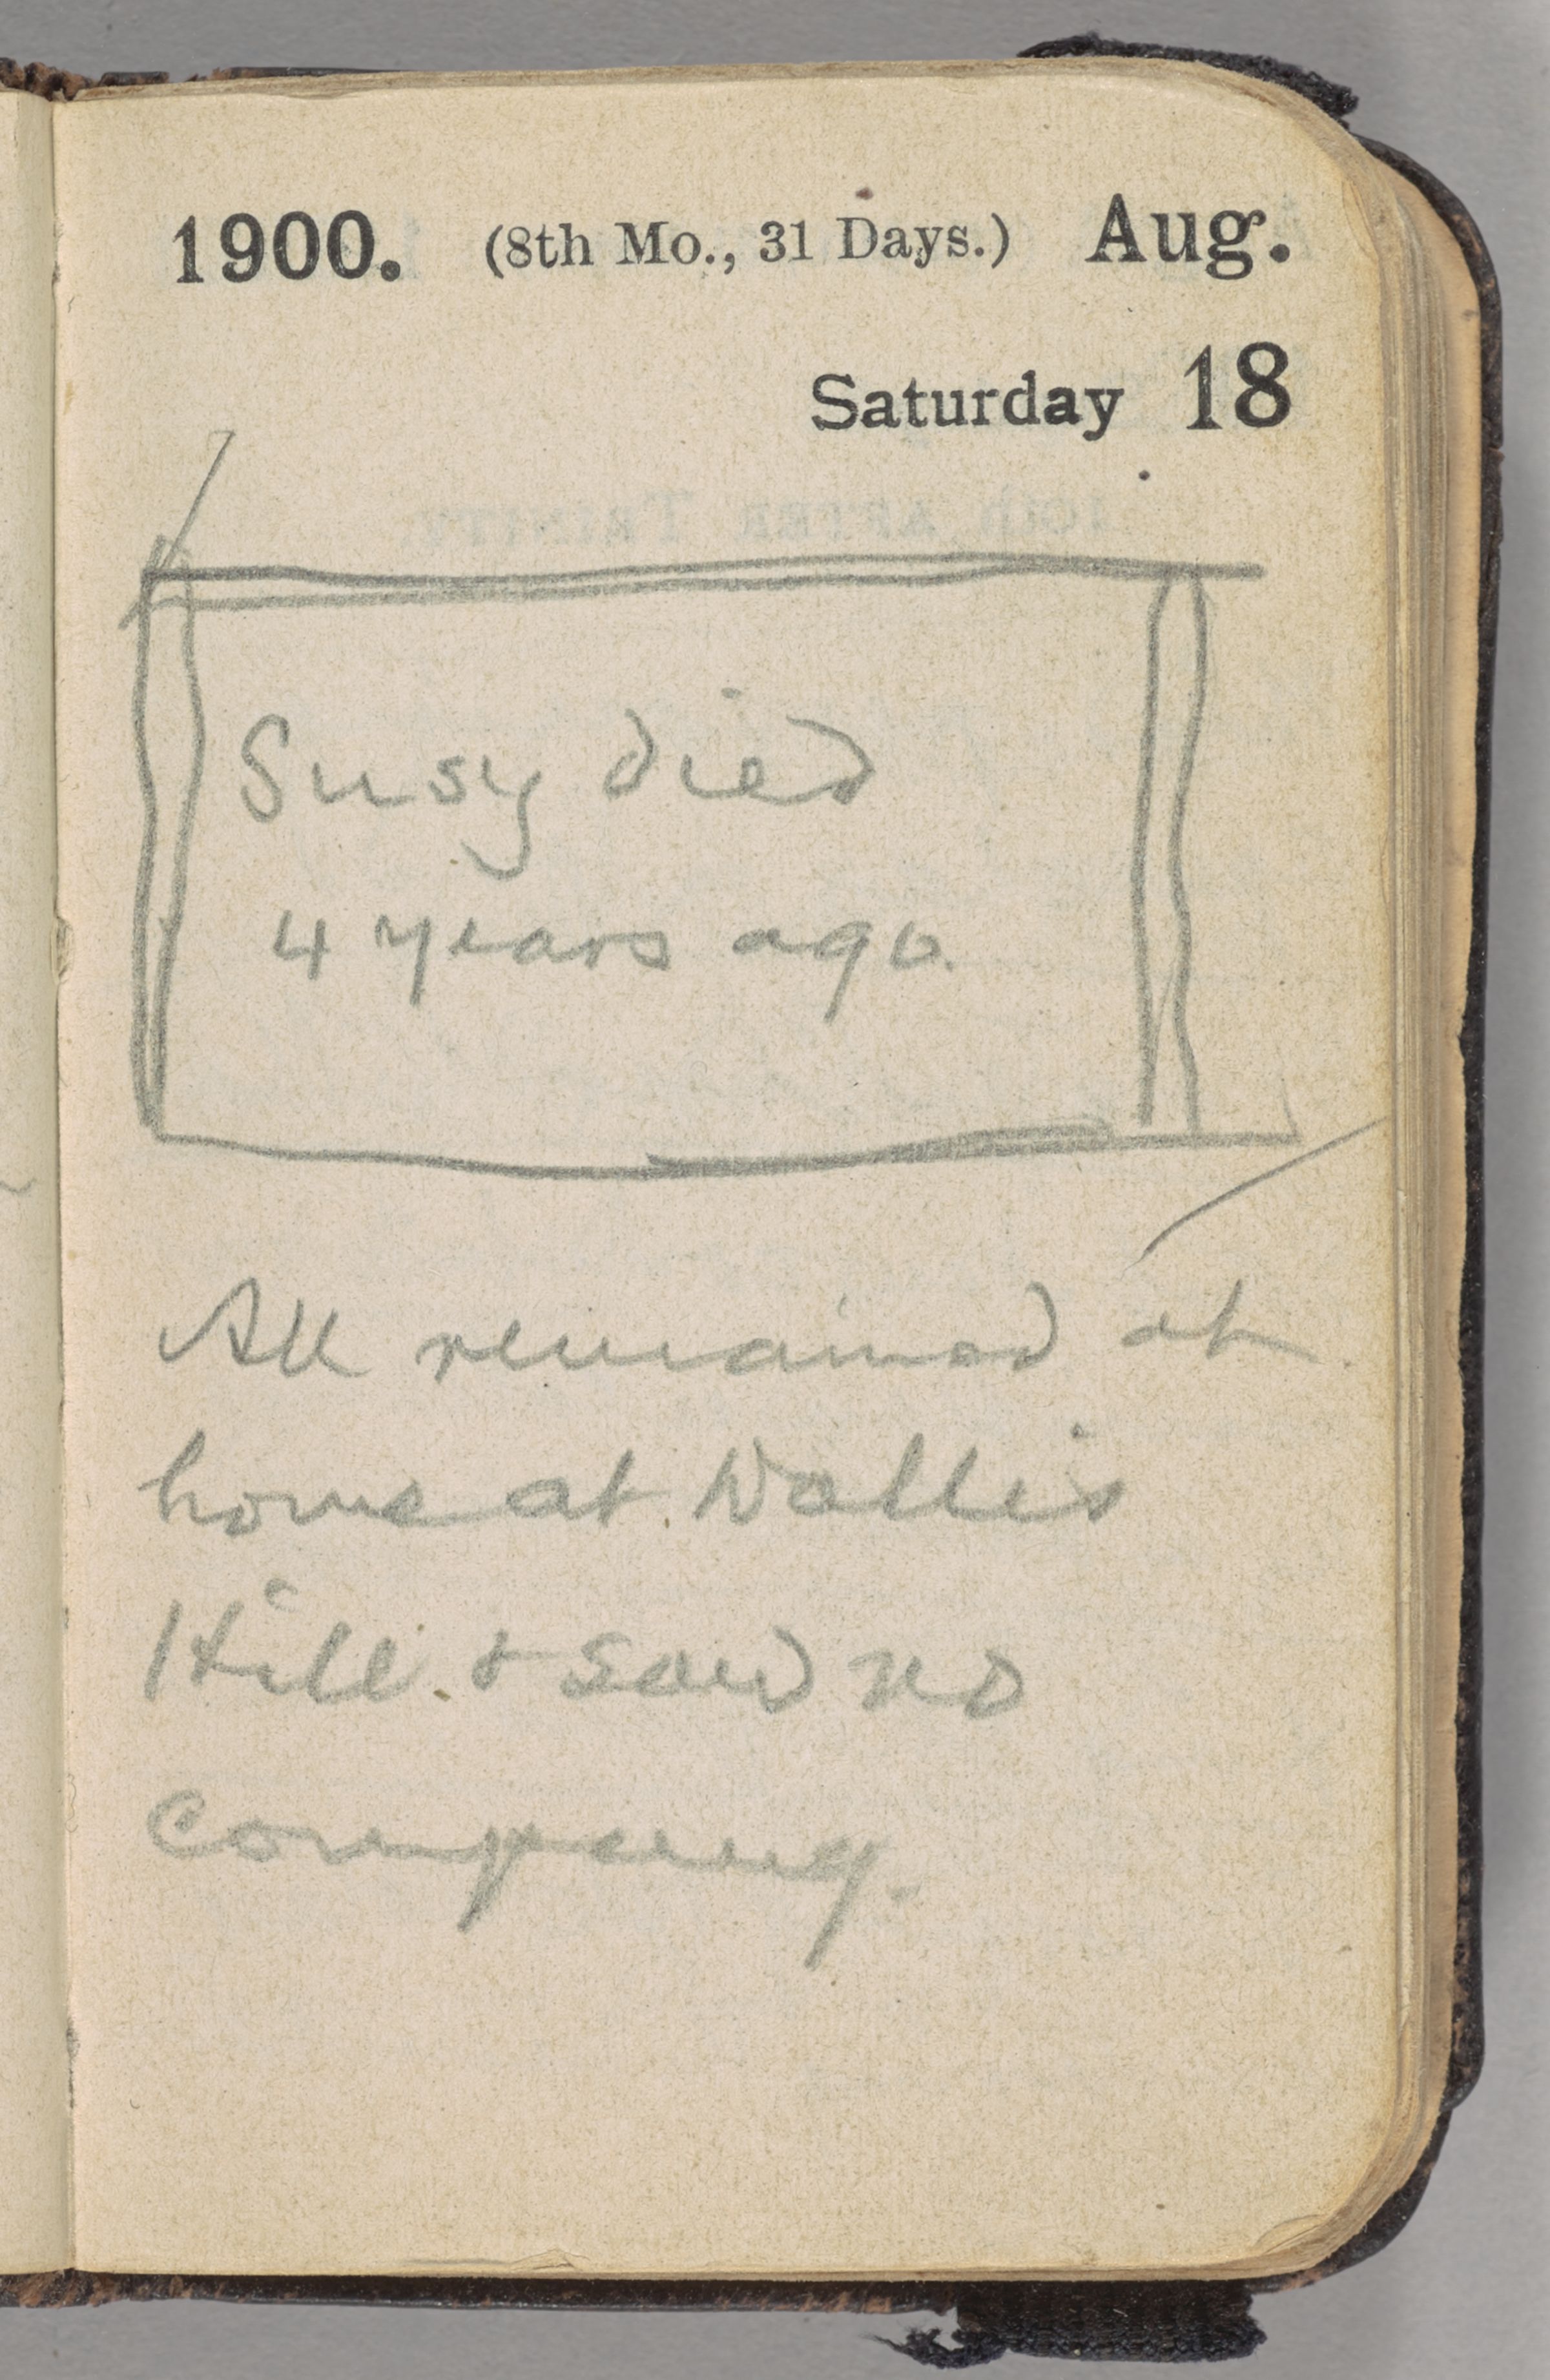 1900. (8th Mo., 31 Days.) Aug.
Saturday 18
10th AFTER TRINITY
Susy died
4 years ago.
All remained at
home at Dollis
Hill & saw no
company.